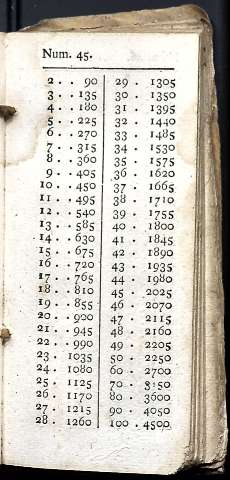 Num. 45.
2 . . 90
3 . . 135
4 . . 180
5 . . 225
6 . . 270
7 . . 315
8 . . 360
9 . . 405
10 . . 450
11 . . 495
12 . . 540
13 . . 585
14 . . 630
15 . . 675
16 . . 720
17 . . 765
18 . . 810
19 . . 855
20 . . 900
21 . . 945
22 . . 990
23 . 1035
24 . 1080
25 . 1125
26 . 1170
27 . 1215
28 . 1260
29 . 1305
30 . 1350
31 . 1395
32 . 1440
33 . 1485
34 . 1530
35 . 1575
36 . 1620
37 . 1665
38 . 1710
39 . 1755
40 . 1800
41 . 1845
42 . 1890
43 . 1935
44 . 1980
45 . 2025
46 . 2070
47 . 2115
48 . 2160
49 . 2205
50 . 2250
60 . 2700
70 . 3150
80 . 3600
90 . 4050
100 . 4500